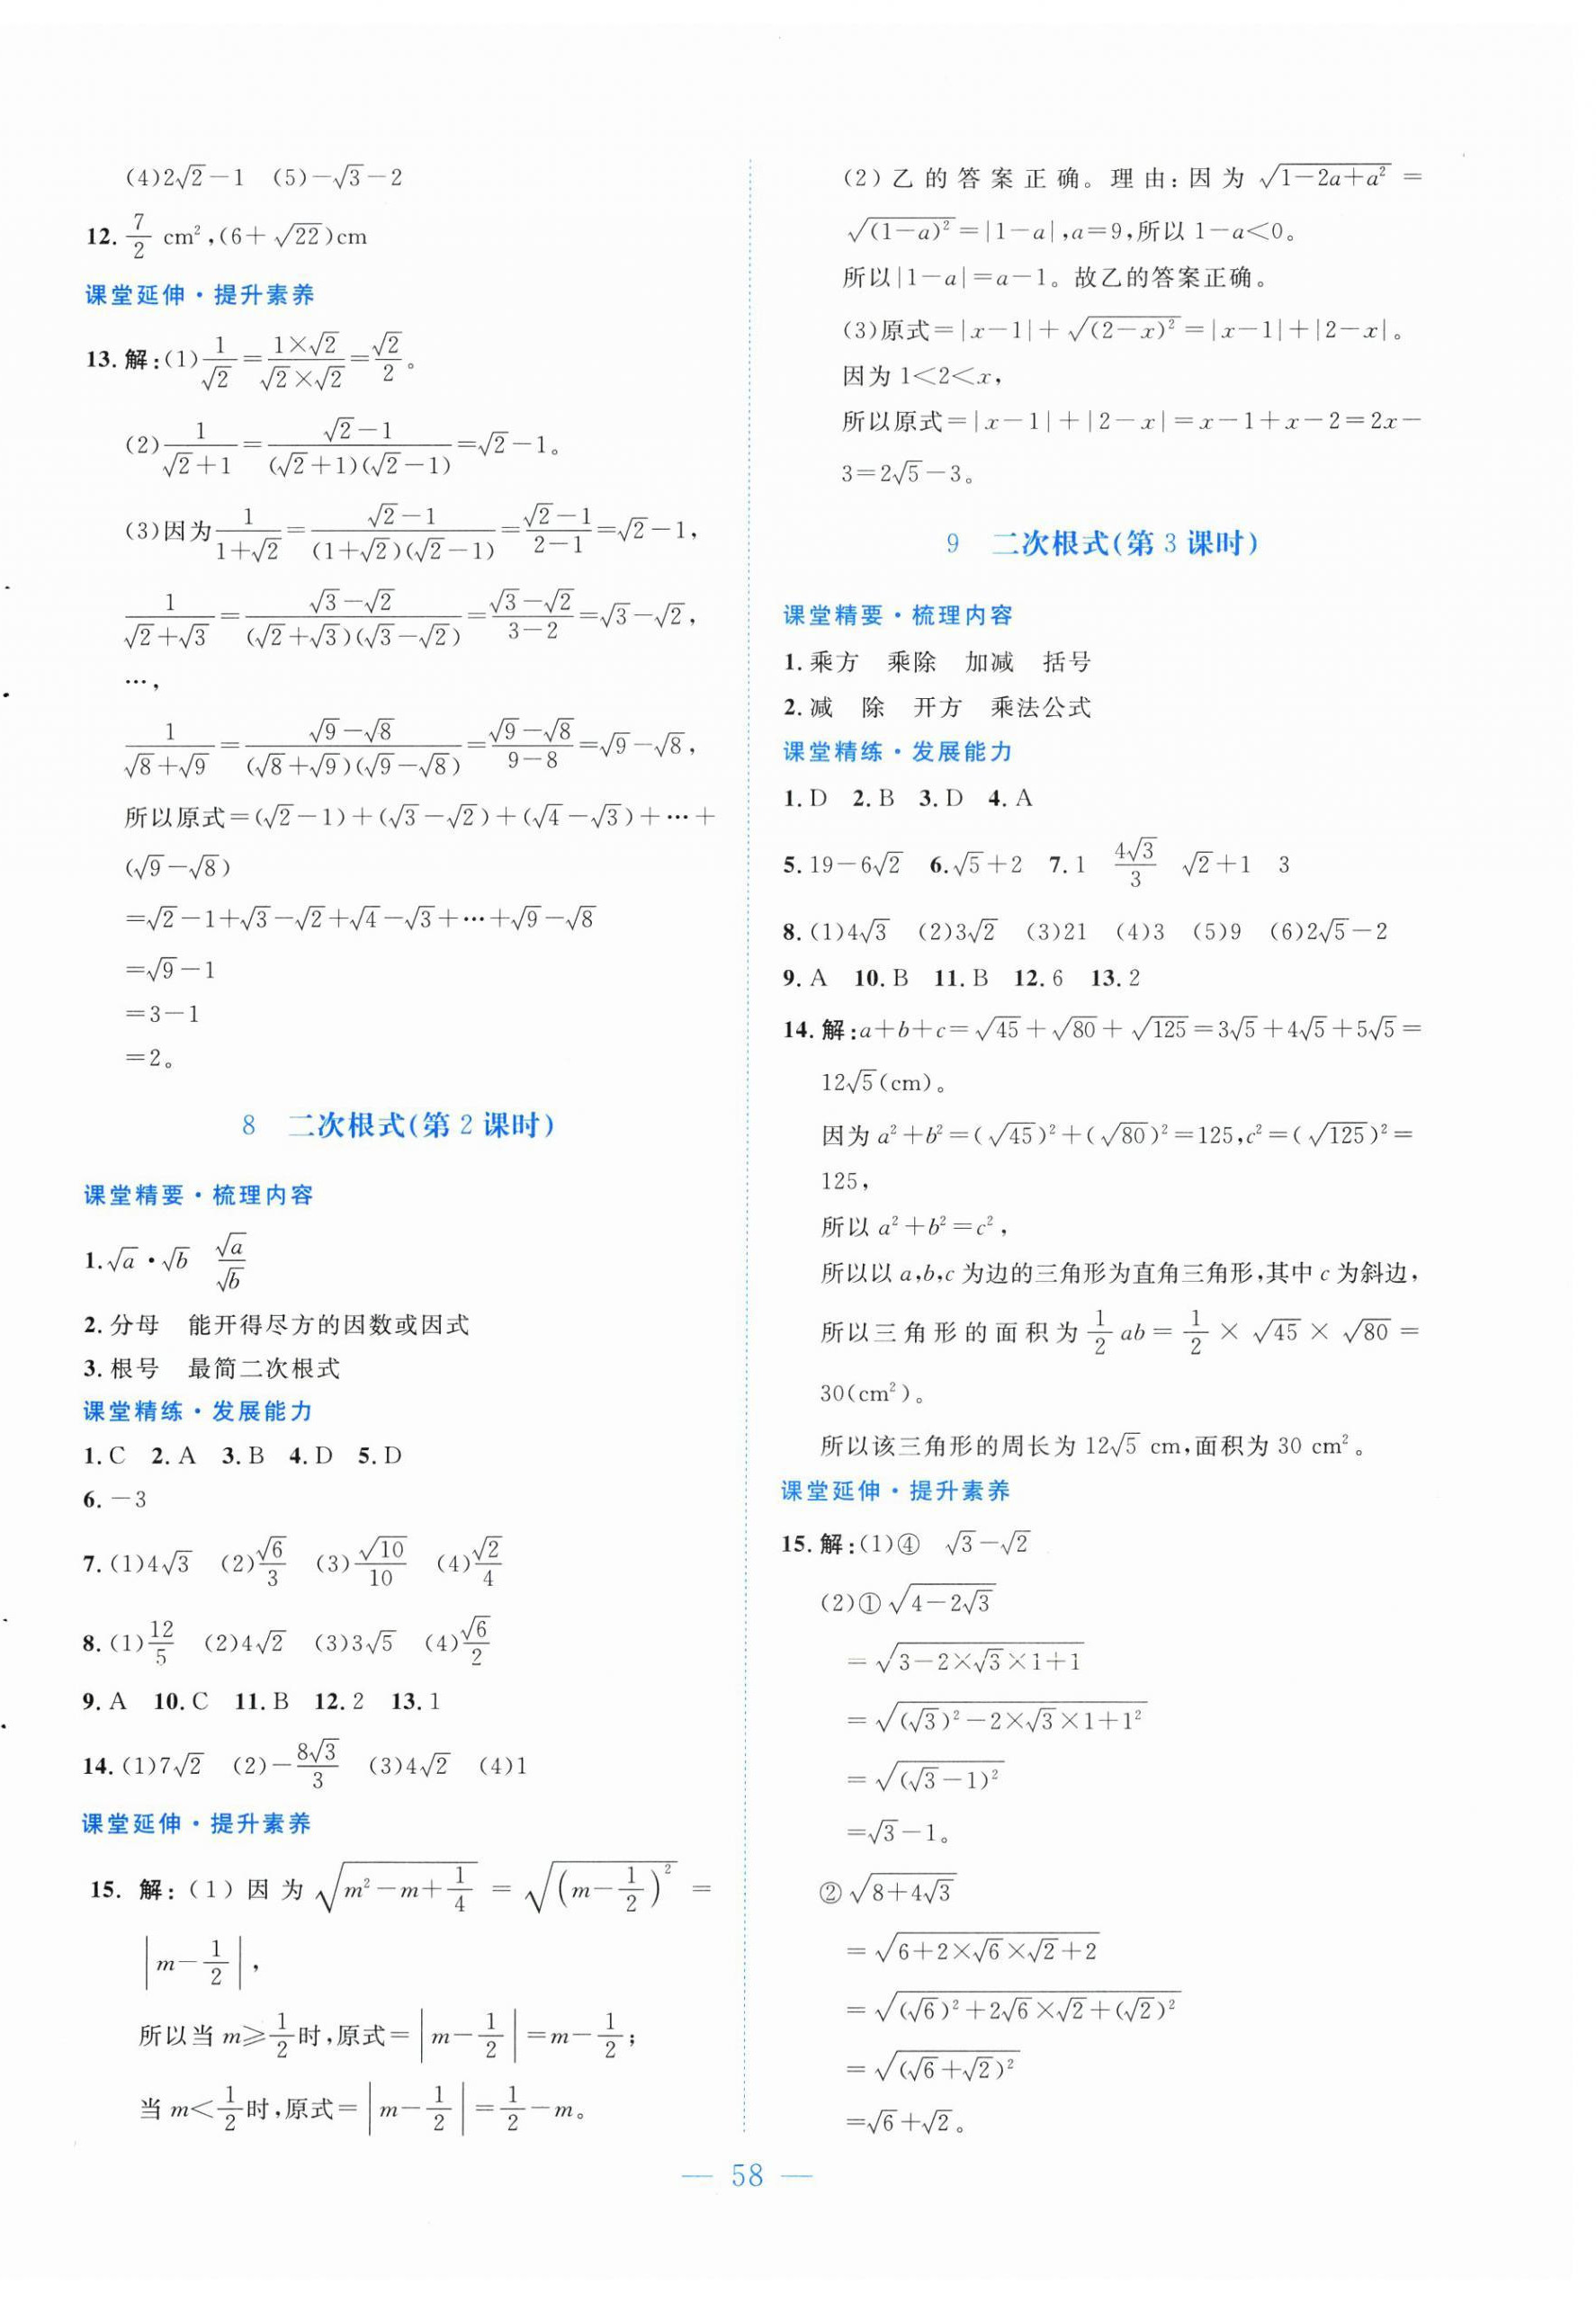 (4)2√2－1 (5)－√3－2
12. 7/2 cm²,(6＋√22)cm
课堂延伸·提升素养
13. 解:(1)1/√2＝(1×√2)/(√2×√2)＝√2/2。
(2)1/(√2＋1)＝(√2－1)/((√2＋1)(√2－1))＝√2－1。
(3)因为1/(1＋√2)＝(√2－1)/((1＋√2)(√2－1))＝(√2－1)/(2－1)＝√2－1,
1/(√2＋√3)＝(√3－√2)/((√2＋√3)(√3－√2))＝(√3－√2)/(3－2)＝√3－√2,
…,
1/(√8＋√9)＝(√9－√8)/((√8＋√9)(√9－√8))＝(√9－√8)/(9－8)＝√9－√8,
所以原式＝(√2－1)＋(√3－√2)＋(√4－√3)＋…＋
(√9－√8)
＝√2－1＋√3－√2＋√4－√3＋…＋√9－√8
＝√9－1
＝3－1
＝2。
8 二次根式(第 2 课时)
课堂精要·梳理内容
1. √a·√b √a/√b
2. 分母 能开得尽方的因数或因式
3. 根号 最简二次根式
课堂精练·发展能力
1. C 2. A 3. B 4. D 5. D
6. －3
7. (1)4√3 (2)√6/3 (3)√10/10 (4)√2/4
8. (1)12/5 (2)4√2 (3)3√5 (4)√6/2
9. A 10. C 11. B 12. 2 13. 1
14. (1)7√2 (2)－8√3/3 (3)4√2 (4)1
课堂延伸·提升素养
15. 解:(1)因为√(m²－m＋1/4)＝√((m－1/2)²)＝
|m－1/2|,
所以当 m≥1/2时,原式＝|m－1/2|＝m－1/2;
当 m＜1/2时,原式＝|m－1/2|＝1/2－m。
(2)乙的答案正确。理由:因为√(1－2a＋a²)＝
√((1－a)²)＝|1－a|,a＝9,所以 1－a＜0。
所以|1－a|＝a－1。故乙的答案正确。
(3)原式＝|x－1|＋√((2－x)²)＝|x－1|＋|2－x|。
因为 1＜2＜x,
所以原式＝|x－1|＋|2－x|＝x－1＋x－2＝2x－
3＝2√5－3。
9 二次根式(第 3 课时)
课堂精要·梳理内容
1. 乘方 乘除 加减 括号
2. 减 除 开方 乘法公式
课堂精练·发展能力
1. D 2. B 3. D 4. A
5. 19－6√2 6. √5＋2 7. 1 4√3/3 √2＋1 3
8. (1)4√3 (2)3√2 (3)21 (4)3 (5)9 (6)2√5－2
9. A 10. B 11. B 12. 6 13. 2
14. 解:a＋b＋c＝√45＋√80＋√125＝3√5＋4√5＋5√5＝
12√5(cm)。
因为 a²＋b²＝(√45)²＋(√80)²＝125,c²＝(√125)²＝
125,
所以 a²＋b²＝c²,
所以以 a,b,c 为边的三角形为直角三角形,其中 c 为斜边,
所以三角形的面积为 1/2 ab＝1/2×√45×√80＝
30(cm²)。
所以该三角形的周长为 12√5 cm,面积为 30 cm²。
课堂延伸·提升素养
15. 解:(1)④ √3－√2
(2)①√(4－2√3)
＝√(3－2×√3×1＋1)
＝√((√3)²－2×√3×1＋1²)
＝√((√3－1)²)
＝√3－1。
②√(8＋4√3)
＝√(6＋2×√6×√2＋2)
＝√((√6)²＋2√6×√2＋(√2)²)
＝√((√6＋√2)²)
＝√6＋√2。
— 58 —